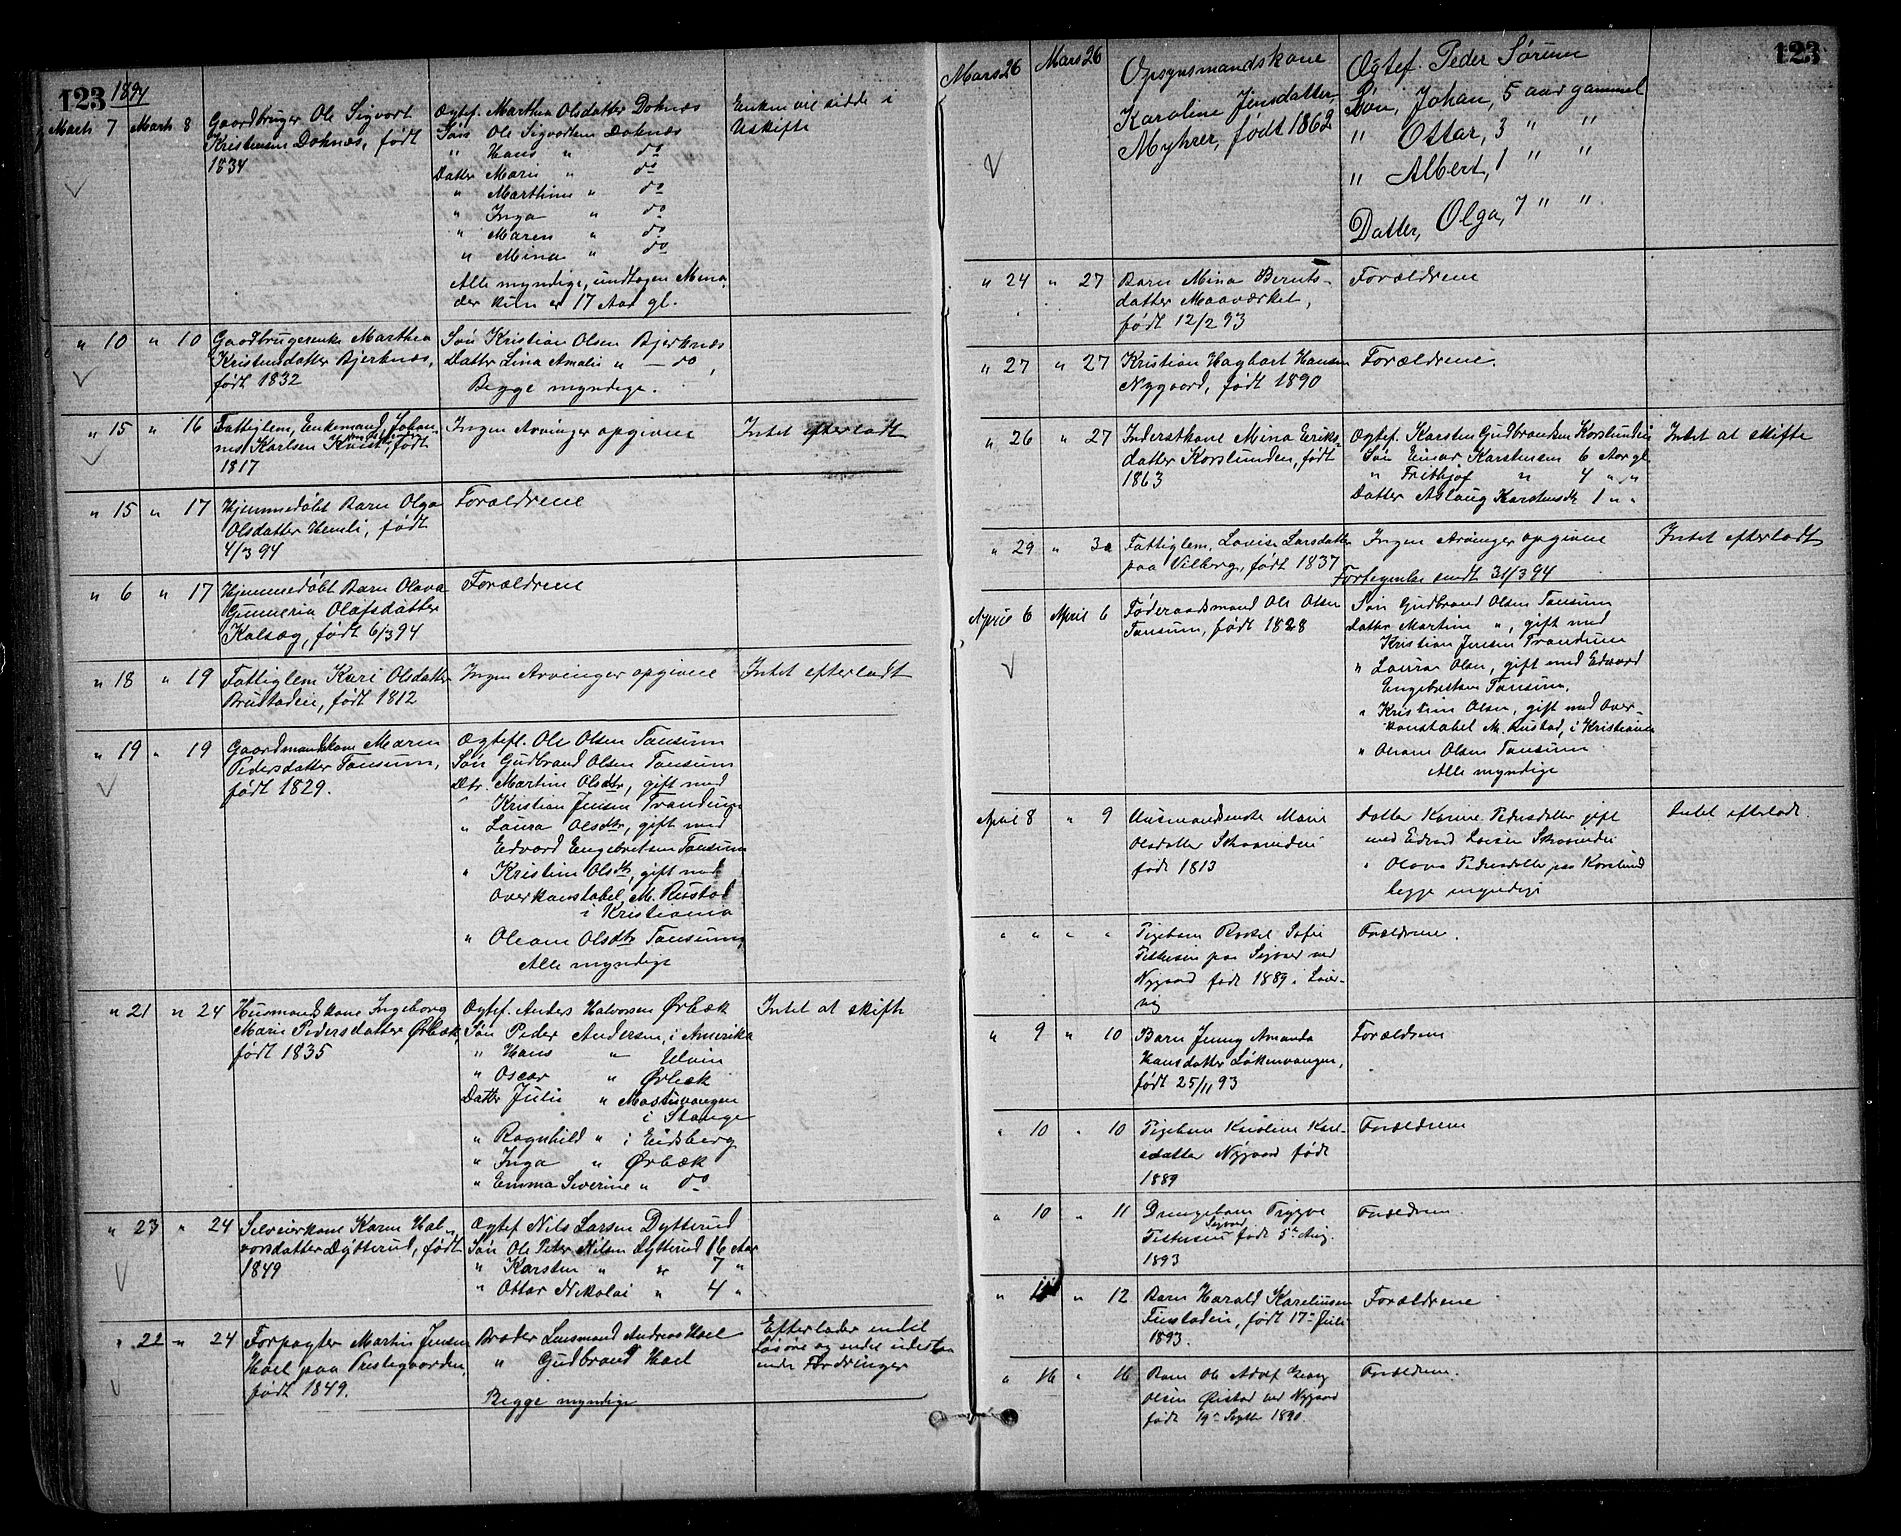 123 1894
Marts 7 Marts 8 Gaardbruger Ole Sigvart
Kristensen Doknæs, født
1834
Ægtef. Marthea Olsdatter Doknæs
Søn Ole Sigvartsen Doknæs
" Hans " do
Datter Marie " do
" Marthine " do
" Inga " do
" Maren " do
" Mina " do
Alle myndige, undtagen Mina
der kun er 17 Aar gl.
Enken vil sidde i
Uskifte
" 10 " 10 Gaardbrugerenke Marthea
Kristensdatter Bjerknæs,
født 1832
Søn Kristian Olsen Bjerknæs
Datter Lina Amalie " — do,
Begge myndige.
" 15 " 16 Fattiglem, Enkemand, Johan-
nes Karlsen Kvisth, født
1817
Ingen Arvinger opgivne
Intet efterladt
" 15 " 17 Hjemmedøbt Barn Olga
Olsdatter Hemli, født
4/3 94
Forældrene
" 6 " 17 Hjemmedøbt Barn Olava
Gunneria Olafsdatter
Kalsæg, født 6/3 94
Forældrene
" 18 " 19 Fattiglem Kari Olsdatter
Brustadeie, født 1812
Ingen Arvinger opgivne
Intet efterladt
" 19 " 19 Gaardmandskone Maren
Pedersdatter Tansum,
født 1829.
Ægtefl. Ole Olsen Tansum
Søn Gudbrand Olsen Tansum
Dtr. Martine Olsdtr, gift med
Kristian Jensen Trandum
" Laura Olsdtr, gift med
Edvard Engebretsen Tansum
" Kristine Olsdtr, gift med
Overkonstabel M. Rustad
i Kristiania
" Oleane Olsdtr Tansum,
Alle myndige
" 21 " 24 Husmandskone Ingeborg
Marie Pedersdatter Ørbæk,
født 1835
Ægtef. Anders Halvorsen Ørbæk
Søn Peder Andersen, i Amerika
" Hans " Ulvin
" Oscar " Ørbæk
Datter Julie " Mostuvangen
i Stange
" Ragnhild " i Eidsberg
" Inga " Ørbæk
" Emma Severine " do
Intet at skifte
" 23 " 24 Selveierkone Karen Hal-
vorsdatter Dytterud, født
1849
Ægtef. Nils Larsen Dytterud
Søn Ole Peter Nilsen Dytterud 16 Aar
" Karsten " " 7 "
" Ottar Nikolai " 4 "
" 22 " 24 Forpagter Martin Jensen
Hoel paa Prestegaarden,
født 1849.
Broder Lensmand Andreas Hoel
" Gudbrand Hoel
Begge myndige
Efterlader endel
Løsøre og endel udestaa-
ende Fordringer
123
Mars 26 Mars 26 Opsynsmandskone
Karoline Jensdatter
Myhrer, født 1862
Ægtef. Peder Sørum
Søn, Johan, 5 aar gammel
" Ottar, 3 " "
" Albert, 1 " "
Datter, Olga, 7 " "
" 24 " 27 Barn Mina Bernts-
datter Maaværket,
født 12/2 93
Forældrene
" 27 " 27 Kristian Hagbart Hansen
Nygaard, født 1890
Forældrene.
" 26 " 27 Inderstkone Mina Eriks-
datter Korslunden, født
1863
Ægtef. Karsten Gudbrandsen Korslundeie
Søn Einar Karstensen 6 Aar gl
" Frithjof " 4 " "
Datter Aslaug Karstensdt. 1 " "
Intet at skifte
" 29 " 30 Fattiglem, Lovise Larsdatter
paa Vilberg, født 1837
Ingen Arvinger opgivne
Fortegnelse sendt 31/3 94
Intet efterladt
April 6 April 6 Føderaadsmand Ole Olsen
Tansum, født 1828
Søn Gudbrand Olsen Tansum
Datter Martine ", gift med
Kristian Jensen Trandum
" Laura Olsen, gift med Edvard
Engebretsen Tansum,
" Kristine Olsen, gift med Over-
konstabel M. Rustad, i Kristiania
" Oleane Olsen Tansum
Alle myndige
April 8 " 9 Husmandsenke Marie
Olsdatter
født 1813
Datter Karine Pedersdatter gift
med Edvard
" Olava Pedersdatter paa Korslund
begge myndige
Intet efterladt.
" " " " Pigebarn Rakel Sofie
paa Sigvar ved
Nygaard født 1889 i
Forældrene.
" 9 " 10 Barn Jenny Amanda
Hansdatter Løkenvangen,
født 25/11 93
Forældrene
" 10 " 10 Pigebarn Karoline Karl-
sdatter Nygaard født
1889
Forældrene
" 10 " 11 Drengebarn Trygve
Sigvard
født 5te Aug.
1893
Forældrene.
" 11 " 12 Barn Harald Karelinsen
Finstadeie, født 17de Juli
1893.
Forældrene
" 16 " 16 Barn Ole Adolf Georg
Olsen Ørstad ved Nygaard
født 19de Septbr 1890.
Forældrene.